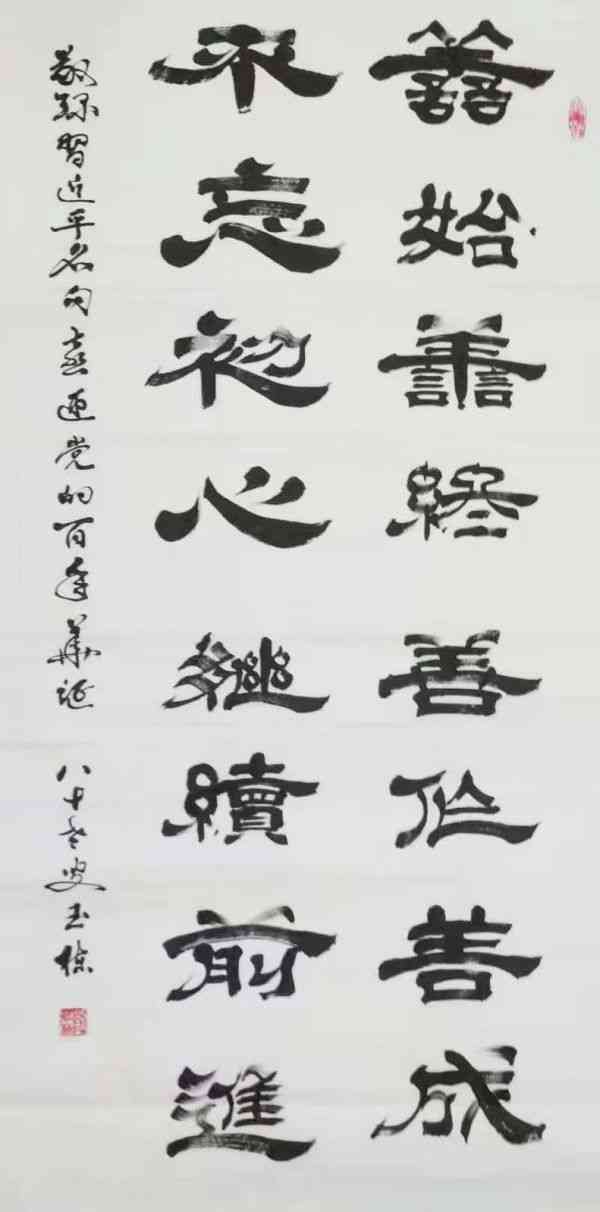 善始善終善作善成
不忘初心繼續前進
敬録習近平名句喜迎党的百年華誕 八十老叟玉棟